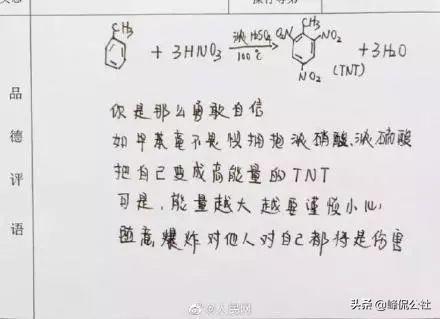 CH₃ + 3HNO₃ 浓H₂SO₄ 100℃ O₂N CH₃ NO₂ NO₂ (TNT) + 3H₂O
你是那么勇敢自信
如甲苯毫不畏惧拥抱浓硝酸、浓硫酸
把自己变成高能量的TNT
可是,能量越大越要谨慎小心
随意爆炸对他人对自己都将是伤害
品德评语
@人民网
头条 @峰侃公社